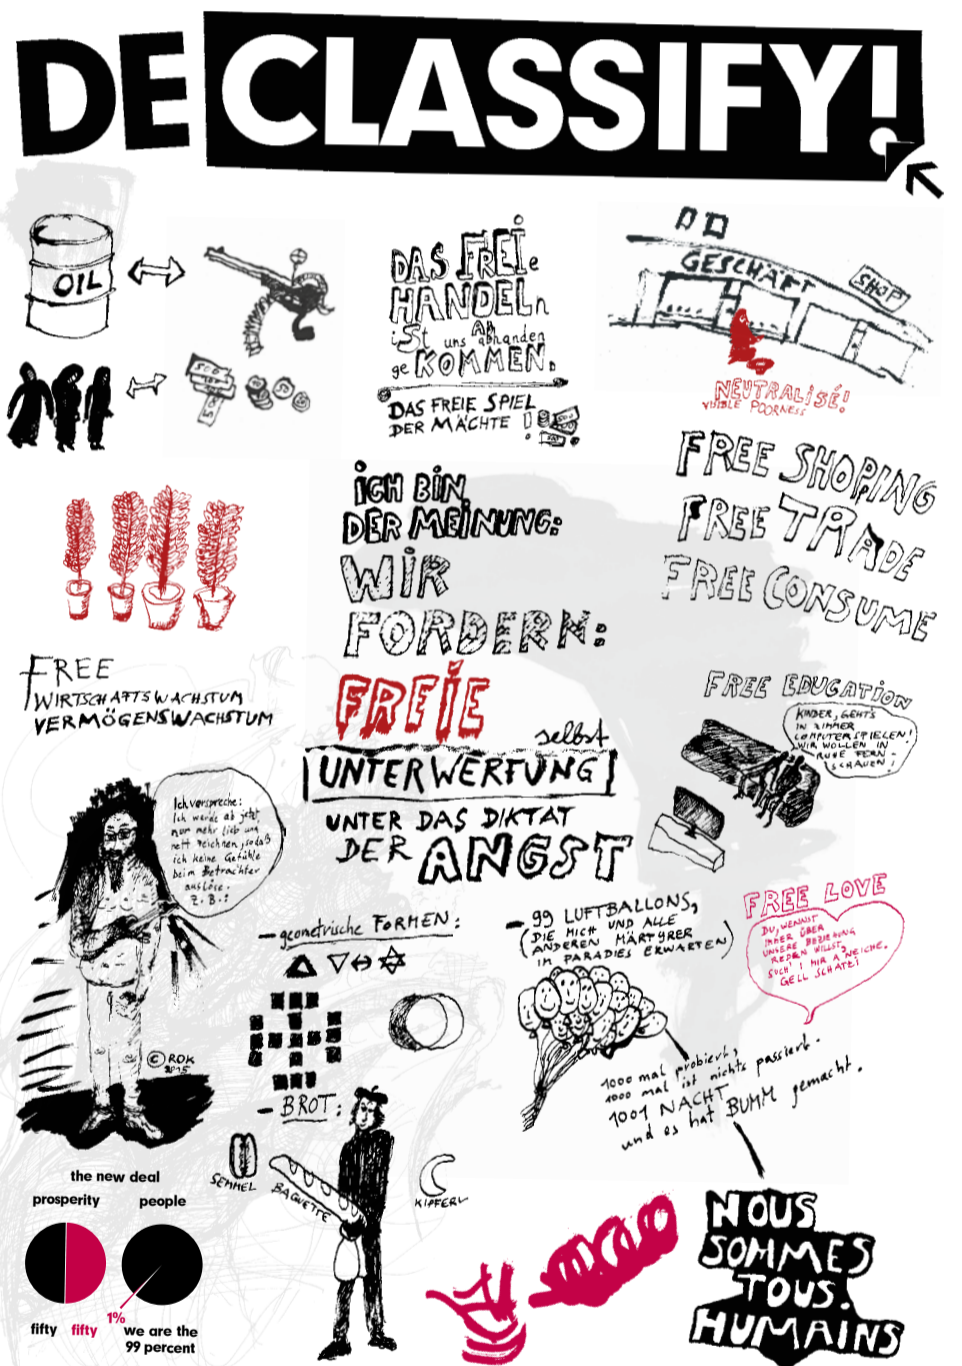 DECLASSIFY!
OIL
500
DAS FREIe
HANDELn
iSt uns ABhanden
geKOMMEN.
DAS FREIE SPIEL
DER MÄCHTE !
GESCHÄFT
SHOP
NEUTRALISÉ!
VISIBLE POORNESS
FREE SHOPING
FREE TRADE
FREE CONSUME
iCH BiN
DER MEiNUNG:
WiR
FORDERN:
FREiE
selbst
UNTERWERFUNG
UNTER DAS DiKTAT
DER ANGST
FREE
WIRTSCHAFTSWACHSTUM
VERMÖGENSWACHSTUM
FREE EDUCATiON
KINDER, GEHTS
IN ZIMMER
COMPUTERSPIELEN!
WIR WOLLEN IN
RUHE FERN-
SCHAUEN!
Ich verspreche:
Ich werde ab jetzt
nur mehr lieb und
nett zeichnen, sodaß
ich keine Gefühle
beim Betrachter
auslöse.
Z.B.:
© ROK
2015
- geometrische FORMEN:
- BROT:
SEMMEL
BAGUETTE
KIPFERL
- 99 LUFTBALLONS,
(DIE MICH UND ALLE
ANDEREN MÄRTYRER
IM PARADIES ERWARTEN)
FREE LOVE
DU, WENNST
IMMER ÜBER
UNSERE BEZIEHUNG
REDEN WILLST,
SUCH' I MIR A NEICHE.
GELL SCHATZI
1000 mal probiert,
1000 mal ist nichts passiert.
1001 NACHT
und es hat BUMM gemacht.
the new deal
prosperity people
fifty fifty
1%
we are the
99 percent
NOUS
SOMMES
TOUS.
HUMAINS